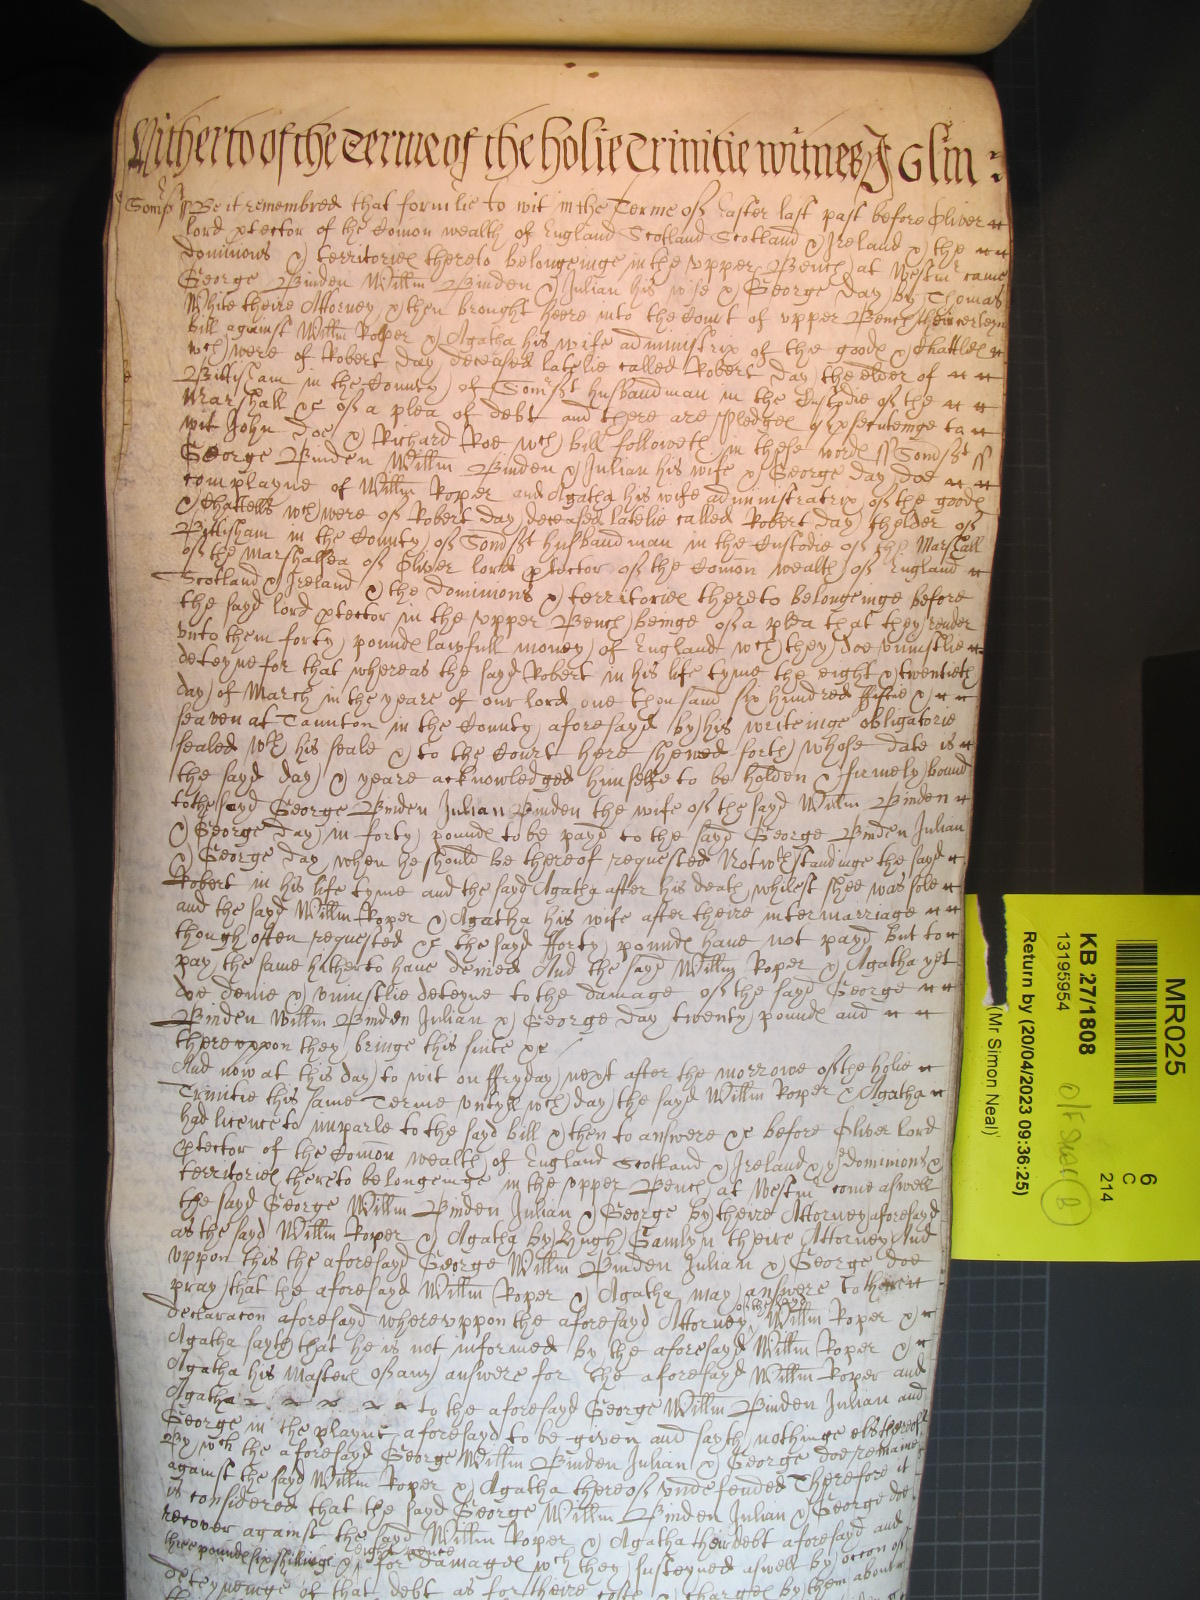 Hitherto of the Terme of the holie Trinitie witnes J Glin :
Somst ss Be it remembred that formlie to wit in the Terme of Easter last past before Oliver
lord ptector of the Comon wealth of England Scotland Scotland & Ireland & the
dominions & territories thereto belongeinge in the upper Bench at Westm came
George Binden Willm Binden & Julian his wife & George Day by Thomas
White theire Attorney & then brought heere into the Court of upper Bench theire certeyn
bill against Willm Roper & Agatha his wife administrix of the goods & Chattles
wch were of Robert Day deceased latelie called Robert Day the elder of
in the County of Somst husbandman in the Custodie of the
Marshall &c of a plea of debt and there are pledges of psecuteinge to
wit John Doe & Richard Roe wch bill followeth in these words ss Somst ss
George Binden Willm Binden & Julian his wife & George Day doe
complayne of Willm Roper and Agatha his wife administratrix of the goods
& Chattells wch were of Robert Day deceased latelie called Robert Day thelder of
in the County of Somst husbandman in the Custodie of the Marshall
of the Marshalsea of Oliver lord ptector of the Comon wealth of England
Scotland & Ireland & the dominions & territories thereto belongeinge before
the sayd lord ptector in the upper Bench beinge of a plea that they render
unto them forty pounds lawfull money of England wch they doe uniustlie
deteyne for that whereas the sayd Robert in his life tyme the eight & twentieth
day of March in the yeare of our lord one thousand six hundred fiftie &
seaven at Taunton in the County aforesayd by his writeinge obligatorie
sealed wth his seale & to the Court here shewed forth whose date is
the sayd day & yeare acknowledged himselfe to be holden & firmely bound
to the sayd George Binden Julian Binden the wife of the sayd Willm Binden
& George Day in forty pounds to be payd to the sayd George Binden Julian
& George Day when he should be thereof requested Notwthstandinge the sayd
Robert in his life tyme and the sayd Agatha after his death whilest shee was sole
and the sayd Willm Roper & Agatha his wife after theire intermarriage
though often requested &c the sayd fforty pounds have not payd but to
pay the same hitherto have denied And the sayd Willm Roper & Agatha yet
doe denie & uniustlie deteyne to the damage of the sayd George
Binden Willm Binden Julian & George Day twenty pounds and
thereuppon they bringe this suite &c
And now at this day to wit on ffryday next after the morrowe of the holie
Trinitie this same Terme untyll wch day the sayd Willm Roper & Agatha
had licence to imparle to the sayd bill & then to answere &c before Oliver lord
ptector of the Comon wealth of England Scotland & Ireland & ye dominions &
territories thereto belongeinge in the upper Bench at Westm come aswell
the sayd George Willm Binden Julian & George by theire Attorney aforesayd
as the sayd Willm Roper & Agatha by Hugh Gamlyn theire Attorney And
uppon this the aforesayd George Willm Binden Julian & George doe
pray that the aforesayd Willm Roper & Agatha may answere to theire
declaracon aforesayd whereuppon the aforesayd Attorney of the sayd Willm Roper &
Agatha sayth that he is not informed by the aforesayd Willm Roper &
Agatha his Masters of any answere for the aforesayd Willm Roper and
Agatha to the aforesayd George Willm Binden Julian and
George in the playnt aforesayd to be given and sayth nothinge els thereof
By wch the aforesayd George Willm Binden Julian & George doe remaine
against the sayd Willm Roper & Agatha thereof undefended Therefore it
is considered that the sayd George Willm Binden Julian & George doe
recover against the sayd Willm Roper & Agatha their debt aforesayd and
three pounds six shillings & eight pence for damages wch they susteyned aswell by occon of
deteyneinge of that debt as for theire costs & charges by them about
MR025
6
C
214
KB 27/1808
13195954
Return by (20/04/2023 09:36:25)
(Mr Simon Neal)